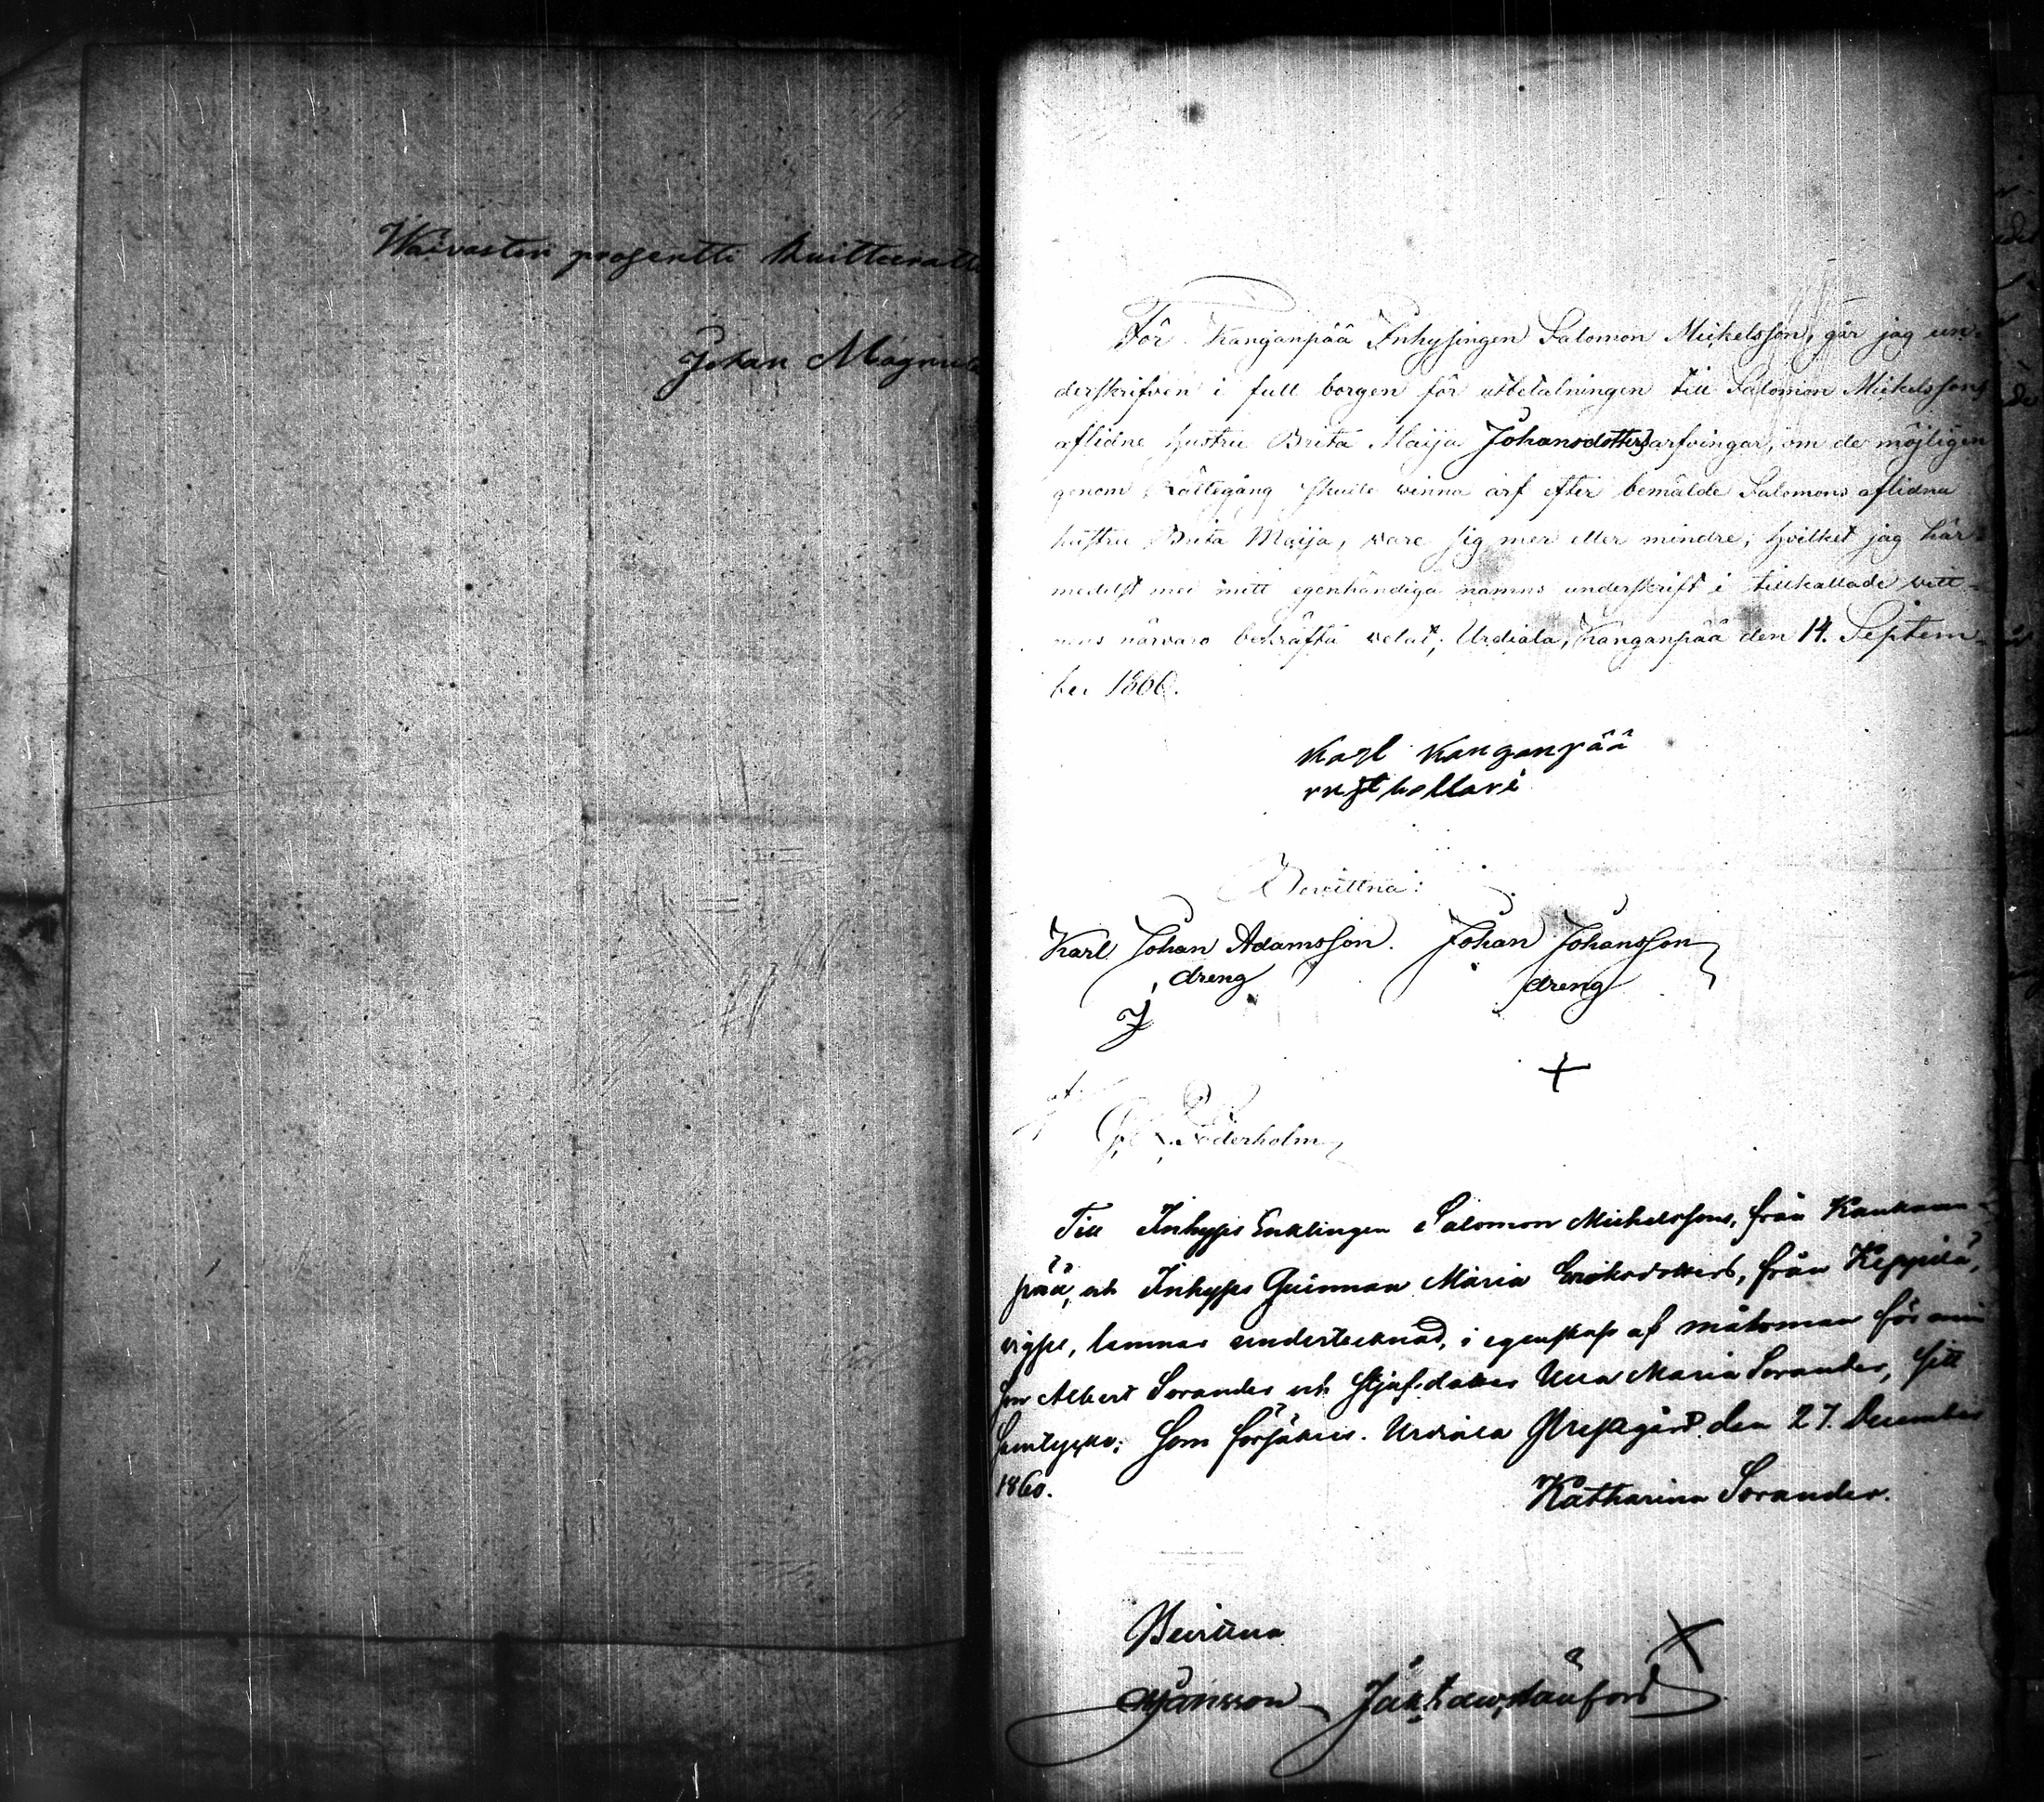 Waivasten prosentti kuitteerattu
Johan Magnus
För Kanganpää Inhysingen Salomon Mickelsson, går jag un-
derskrifven i full borgen för utbetalningen till Salomon Mickelssons
aflidne hustru Brita Maija Johansdotters arfvingar, om de möjligen
genom Rättegång skulle winna arf efter bemälde Salomons aflidna
hustru Brita Maija, vare sig mer eller mindre; hvilket jag här-
medelst med mitt egenhändiga namns underskrift i tillkallade witt-
nens närvaro bekräfta velat; Urdiala, Kanganpää den 14. Septem-
ber 1860.
Karl Kanganpää
rusthollari
Bevittna:
Karl Johan Adamsson. Johan Johansson
dreng dreng
Söderholm
Till Inhyses Enklingen Salomon Mickelssons, från Kankaan-
pää, och Inhyses Quinnan Maria Eriksdotters, från Keppilä,
vigsel, lemnar undertecknad, i egenskap af målsman för min
son Albert Sorander och Stjufdotter Ulla Maria Sorander, sitt
samtycke; som försäkras. Urdiala Prestgård den 27. December
1860.
Katharina Sorander.
Bevittna